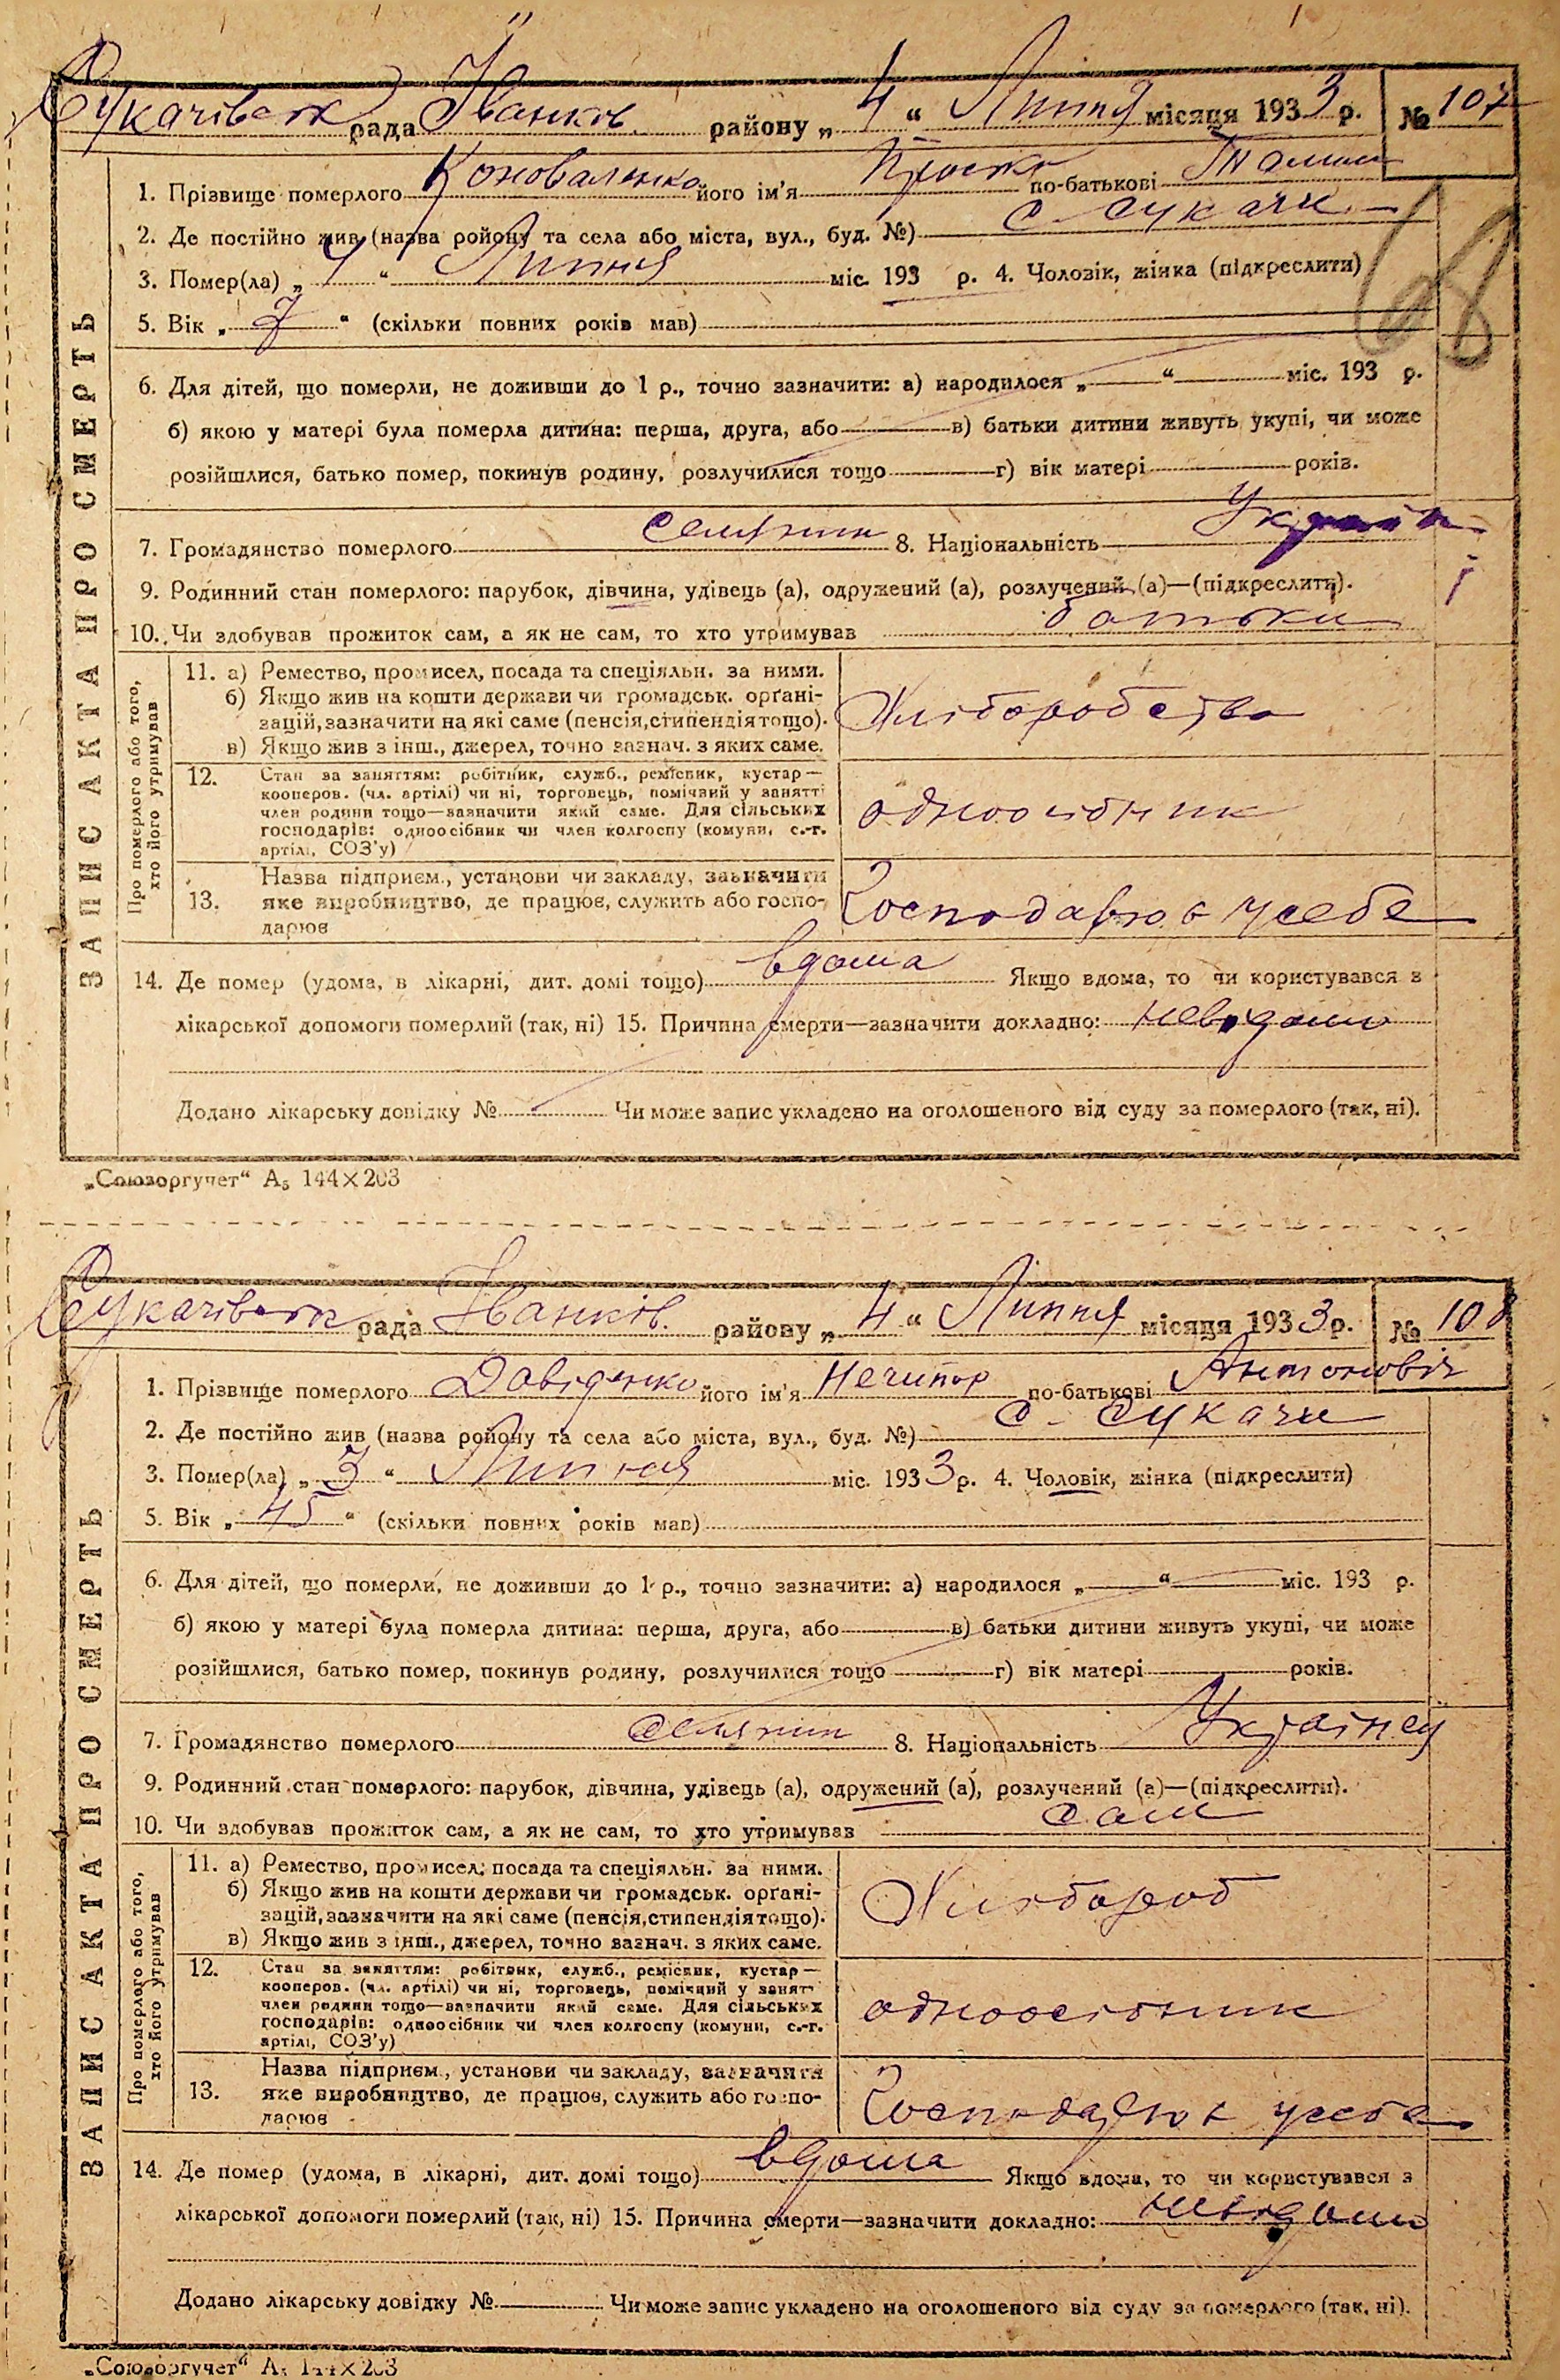 Сукачівська рада Іванків. району „ 4 “ Липня місяця 1933 р. № 107
1. Прізвище померлого Коноваленко його ім'я по-батькові
2. Де постійно жив (назва ройону та села або міста, вул., буд. №) с. Сукачи
3. Помер(ла) „ 4 “ Липня міс. 193 р. 4. Чоловік, жінка (підкреслити)
5. Вік „ 7 “ (скільки повних років мав)
68
6. Для дітей, що померли, не доживши до 1 р., точно зазначити: а) народилося „ “ міс. 193 р.
б) якою у матері була померла дитина: перша, друга, або в) батьки дитини живуть укупі, чи може
розійшлися, батько помер, покинув родину, розлучилися тощо г) вік матері років.
7. Громадянство померлого селянин 8. Національність
9. Родинний стан померлого: парубок, дівчина, удівець (а), одружений (а), розлучений (а)—(підкреслити).
10. Чи здобував прожиток сам, а як не сам, то хто утримував батьки
ЗАПИС АКТА ПРО СМЕРТЬ
Про померлого або того,
хто його утримував
11. а) Ремество, промисел, посада та спеціяльн. за ними.
б) Якщо жив на кошти держави чи громадськ. орґані-
зацій, зазначити на які саме (пенсія, стипендія тощо).
в) Якщо жив з інш., джерел, точно зазнач. з яких саме.
Хліборобство
12. Стан за заняттям: робітник, служб., ремісник, кустар—
кооперов. (чл. артілі) чи ні, торговець, помічний у занятті
член родини тощо—зазначити який саме. Для сільських
господарів: одноосібник чи член колгоспу (комуни, с.-г.
артілі, СОЗ'у)
одноосібник
13. Назва підприєм., установи чи закладу, зазначити
яке виробництво, де працює, служить або госпо-
дарює
Господарює у себе
14. Де помер (удома, в лікарні, дит. домі тощо) вдома Якщо вдома, то чи користувався з
лікарської допомоги померлий (так, ні) 15. Причина смерти—зазначити докладно: невідомо
Додано лікарську довідку № Чи може запис укладено на оголошеного від суду за померлого (так, ні).
„Союзоргучет“ А₅ 144×203
Сукачівська рада Іванків. району „ 4 “ Липня місяця 1933 р. № 108
1. Прізвище померлого Давіденко його ім'я Нечипор по-батькові Антоновіч
2. Де постійно жив (назва ройону та села або міста, вул., буд. №) с. Сукачи
3. Помер(ла) „ 3 “ Липня міс. 1933 р. 4. Чоловік, жінка (підкреслити)
5. Вік „ 45 “ (скільки повних років мав)
6. Для дітей, що померли, не доживши до 1 р., точно зазначити: а) народилося „ “ міс. 193 р.
б) якою у матері була померла дитина: перша, друга, або в) батьки дитини живуть укупі, чи може
розійшлися, батько помер, покинув родину, розлучилися тощо г) вік матері років.
7. Громадянство померлого селянин 8. Національність Українец
9. Родинний стан померлого: парубок, дівчина, удівець (а), одружений (а), розлучений (а)—(підкреслити).
10. Чи здобував прожиток сам, а як не сам, то хто утримував сам
ЗАПИС АКТА ПРО СМЕРТЬ
Про померлого або того,
хто його утримував
11. а) Ремество, промисел, посада та спеціяльн. за ними.
б) Якщо жив на кошти держави чи громадськ. орґані-
зацій, зазначити на які саме (пенсія, стипендія тощо).
в) Якщо жив з інш., джерел, точно зазнач. з яких саме.
Хлібороб
12. Стан за заняттям: робітник, служб., ремісник, кустар—
кооперов. (чл. артілі) чи ні, торговець, помічний у занятт
член родини тощо—зазначити який саме. Для сільських
господарів: одноосібник чи член колгоспу (комуни, с.-г.
артілі, СОЗ'у)
одноосібник
13. Назва підприєм., установи чи закладу, зазначити
яке виробництво, де працює, служить або госпо-
дарює
Господарює у себе
14. Де помер (удома, в лікарні, дит. домі тощо) вдома Якщо вдома, то чи користувався з
лікарської допомоги померлий (так, ні) 15. Причина смерти—зазначити докладно: невідомо
Додано лікарську довідку № Чи може запис укладено на оголошеного від суду за померлого (так, ні).
„Союзоргучет“ А₅ 144×203